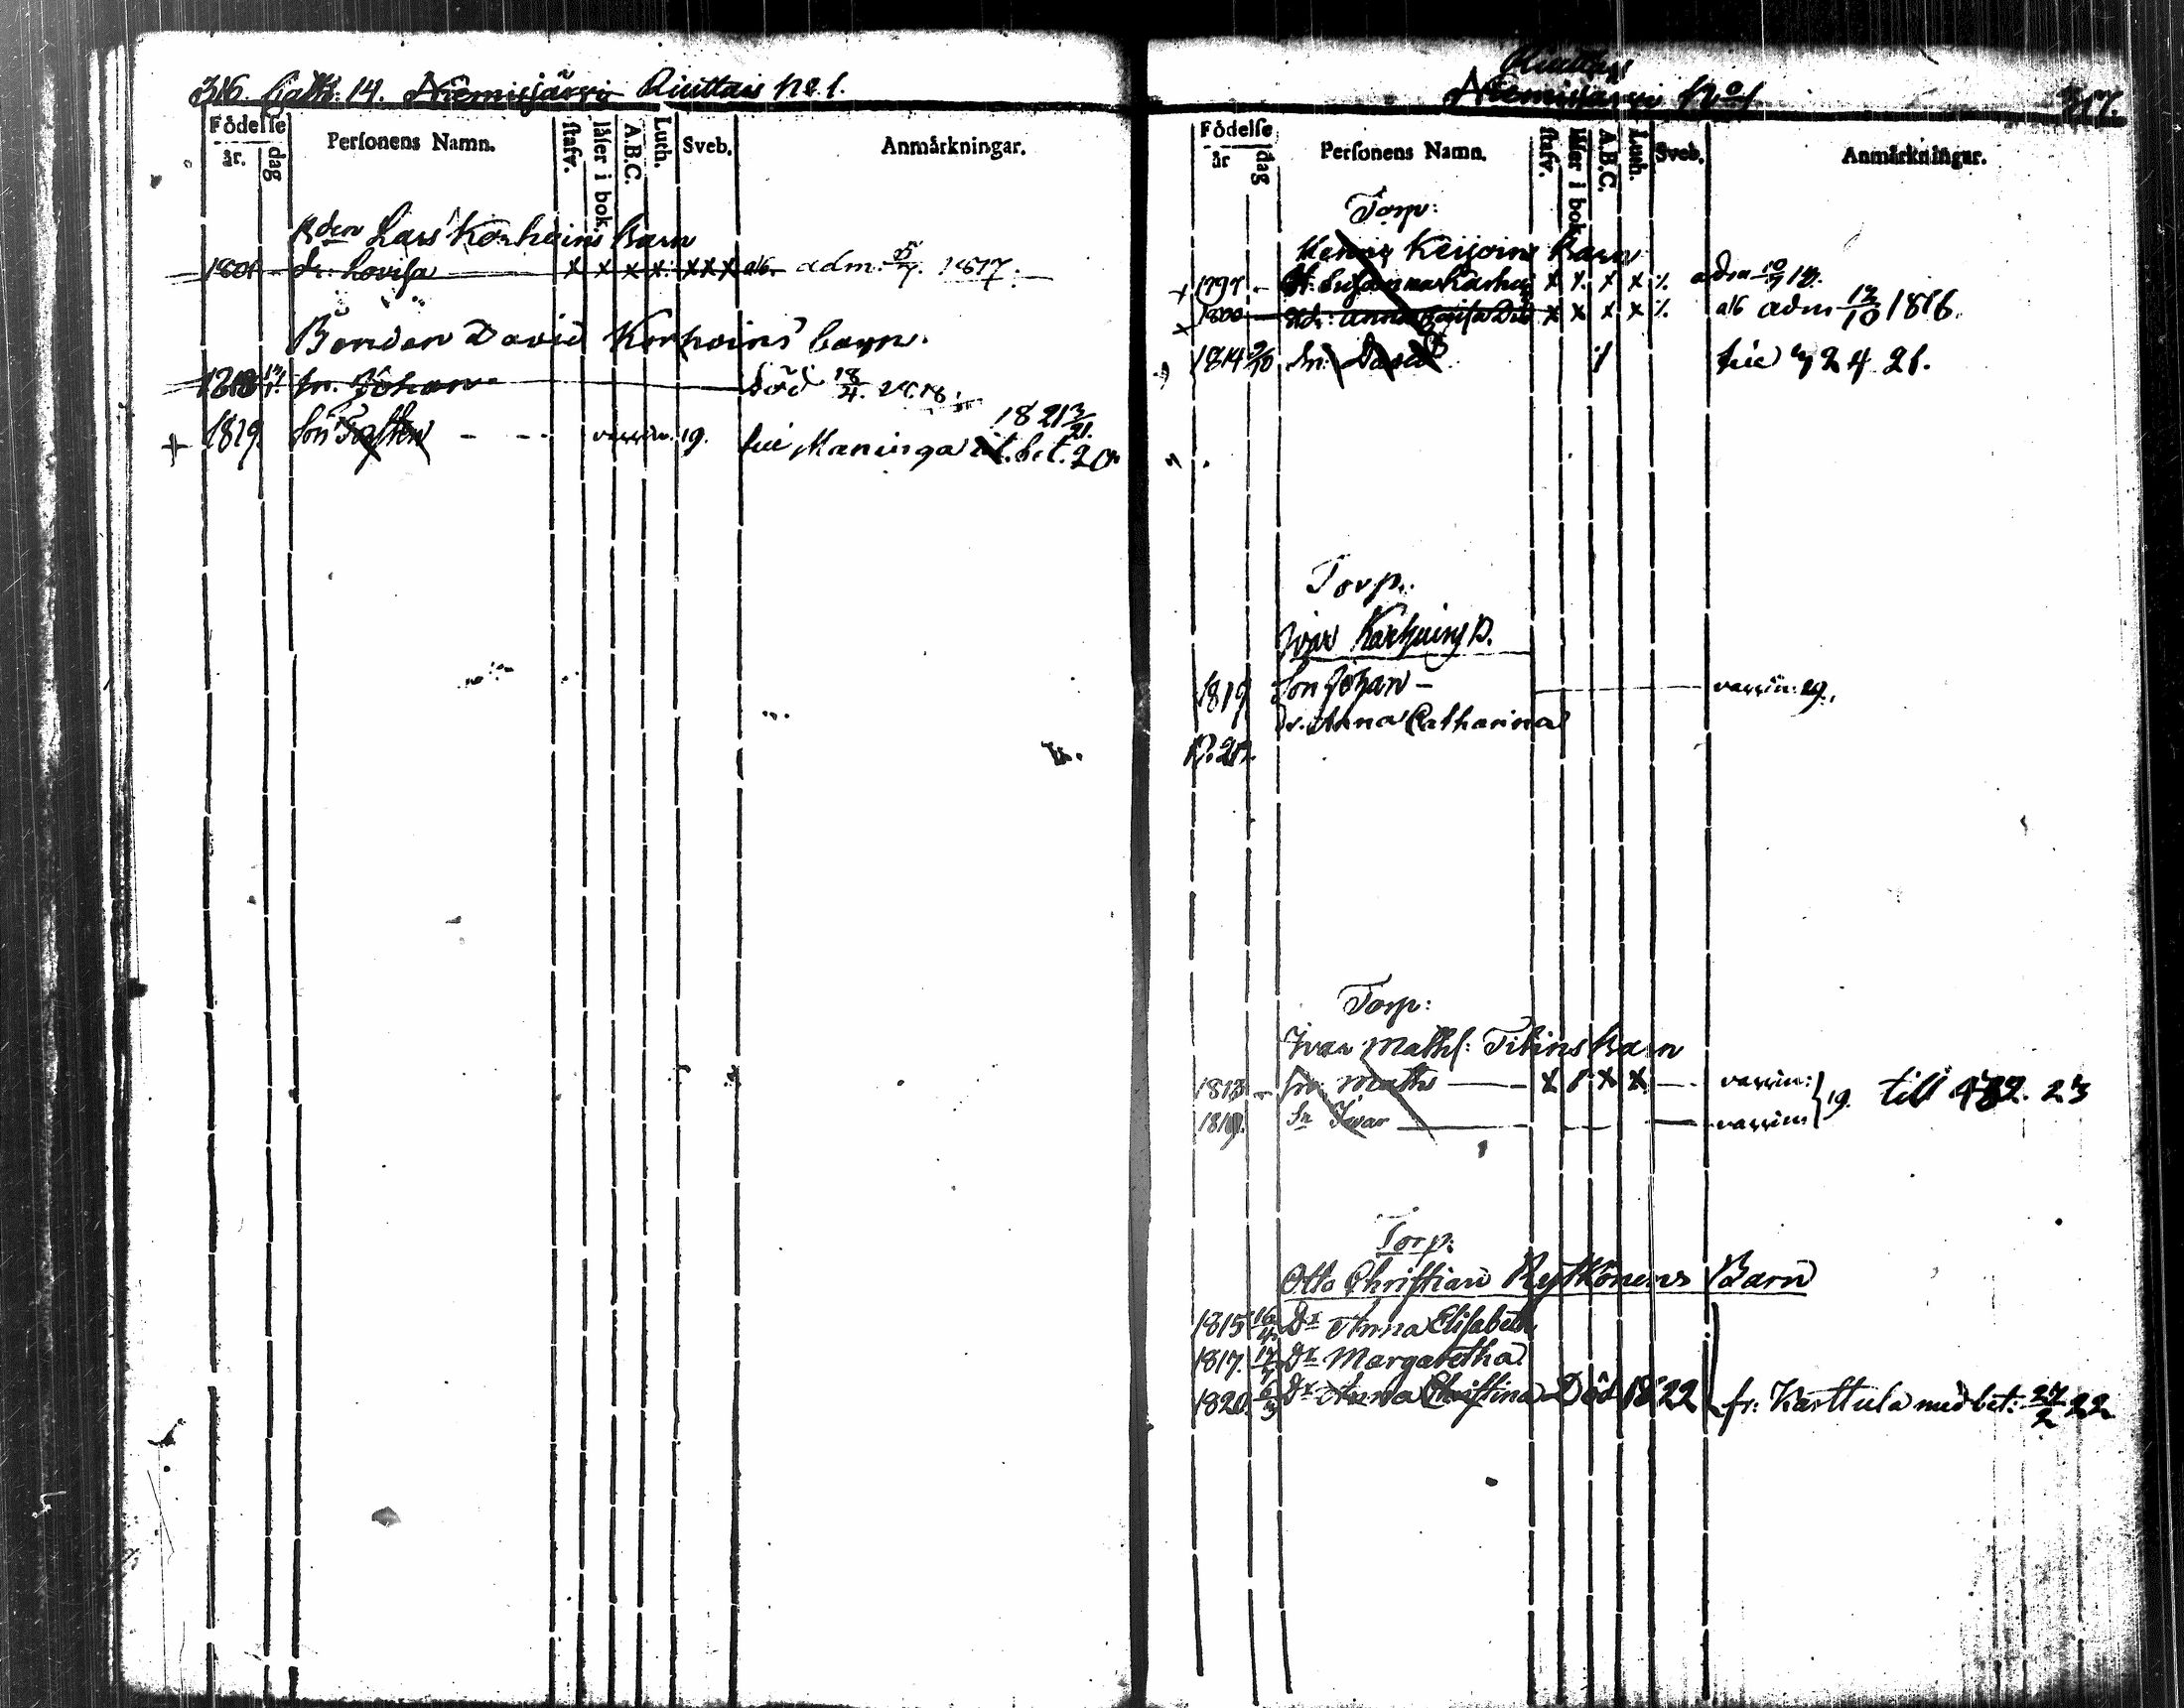 316. Niemisjärvi Riuttais No 1.
Födelse
år. dag
Personens Namn.
stafv.
läser i bok.
A.B.C.
Luth.
Sveb.
Anmärkningar.
Lars Korhoins Barn
1801 dr. Lovisa x x x x x x x adm. 5/7. 1817.
Bonden David Korhoins barn.
1818 sn. Johan död 18/4. 1818.
1821 3/21.
+ 1819. Son vaccin. 19. Maninga bet. 20
Riuttais
Niemisjärvi No 1 317.
Födelse
år dag
Personens Namn.
stafv.
läser i bok
A.B.C.
Luth.
Sveb.
Anmärkningar.
Torp:
Barn
+ 1797 x x x x adm
+ 1800 Anna x x x x adm 12/10 1816.
1814 9/10 sn. David 24 21.
Torp.
Ivar
1819 Son Johan – vaccin: 19.
dr. Anna Catharina
Torp:
Ivar Maths: Barn
1813 sn. Maths x x x vaccin: } 19. till 482. 23
1819. Sn Ivar vaccin
Torp:
Otto Christian Rytkönens Barn
1815 16/4 Dr Anna Elisabeth
1817. 17 Dr Margaretha
1820. 6/3 Dr Anna Christina Död 1822 fr: Karttula med bet: 27/2 22